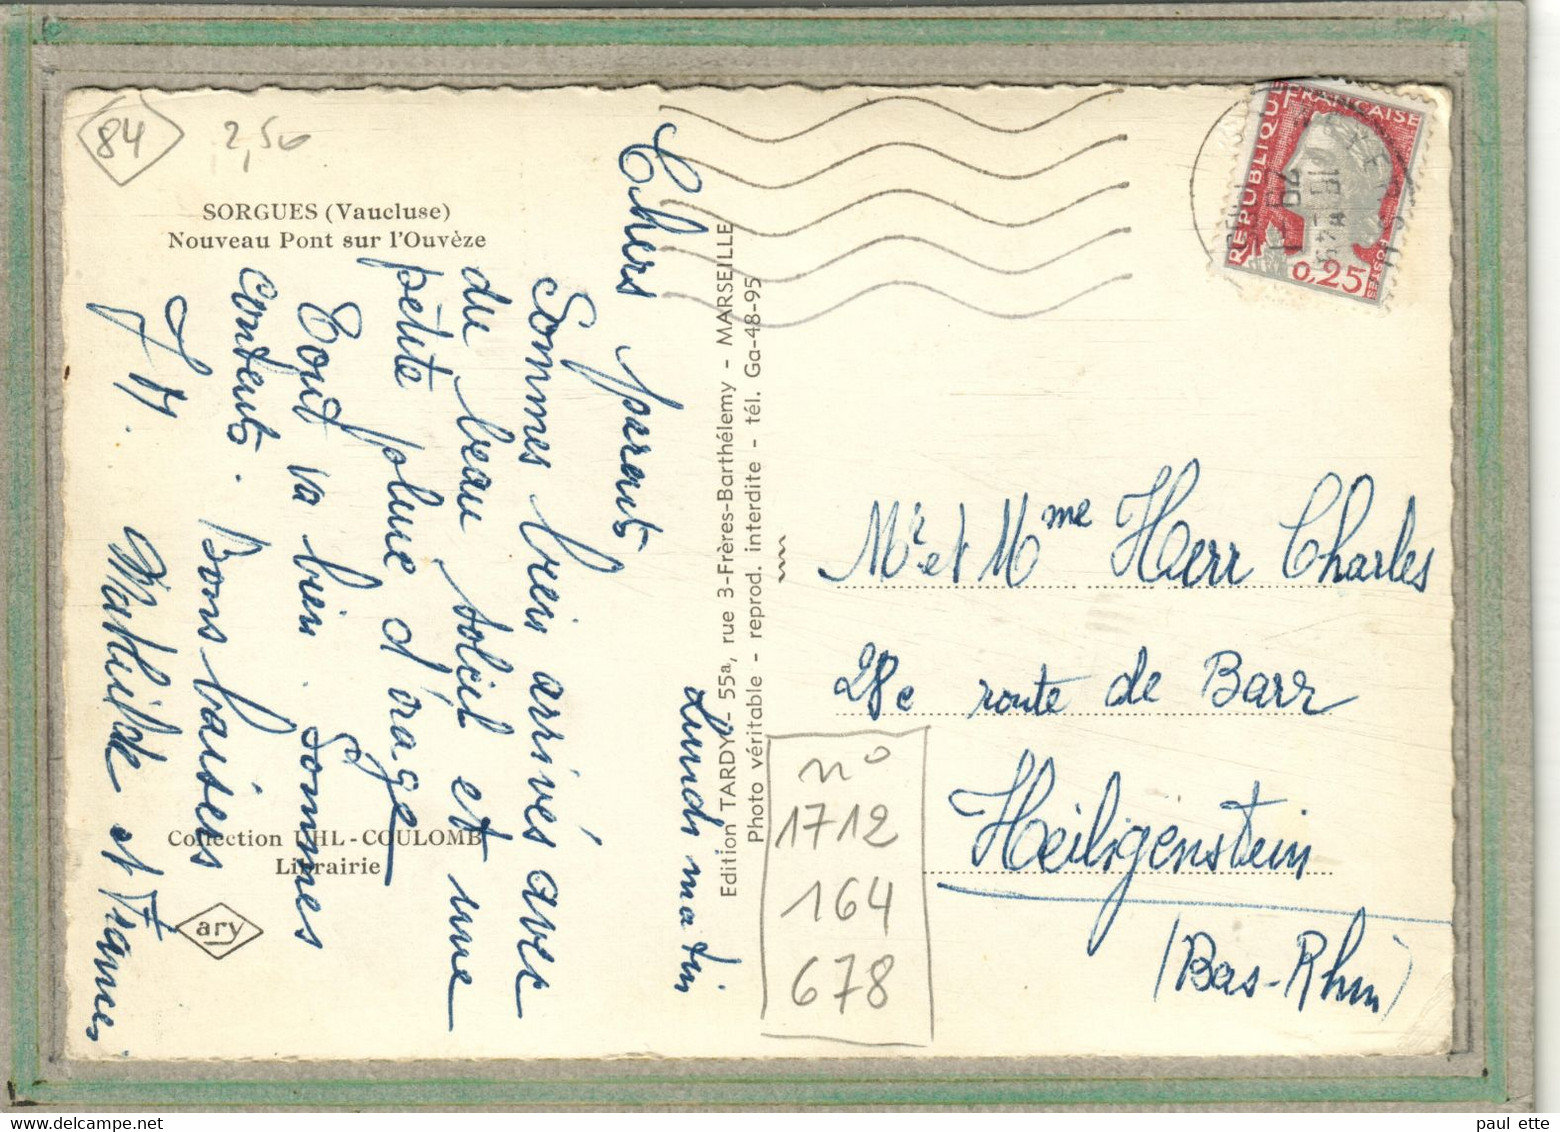 84
2,50
SORGUES (Vaucluse)
Nouveau Pont sur l'Ouvèze
Lundi matin
Chers parents
Sommes bien arrivés avec
du beau soleil et une
petite pluie d'orage
Tout va bien. Sommes
contents. Bons baisers
J M. Mathilde et Francis
Collection LHL-COULOMB
Librairie
ary
Edition TARDY - 55a, rue 3-Frères-Barthélemy - MARSEILLE
Photo véritable - reprod. interdite - tél. Ga-48-95
REPUBLIQUE FRANÇAISE
POSTES
0,25
Mr et Mme Herr Charles
28c route de Barr
Heiligenstein
(Bas-Rhin)
n°
1712
164
678
paul ette